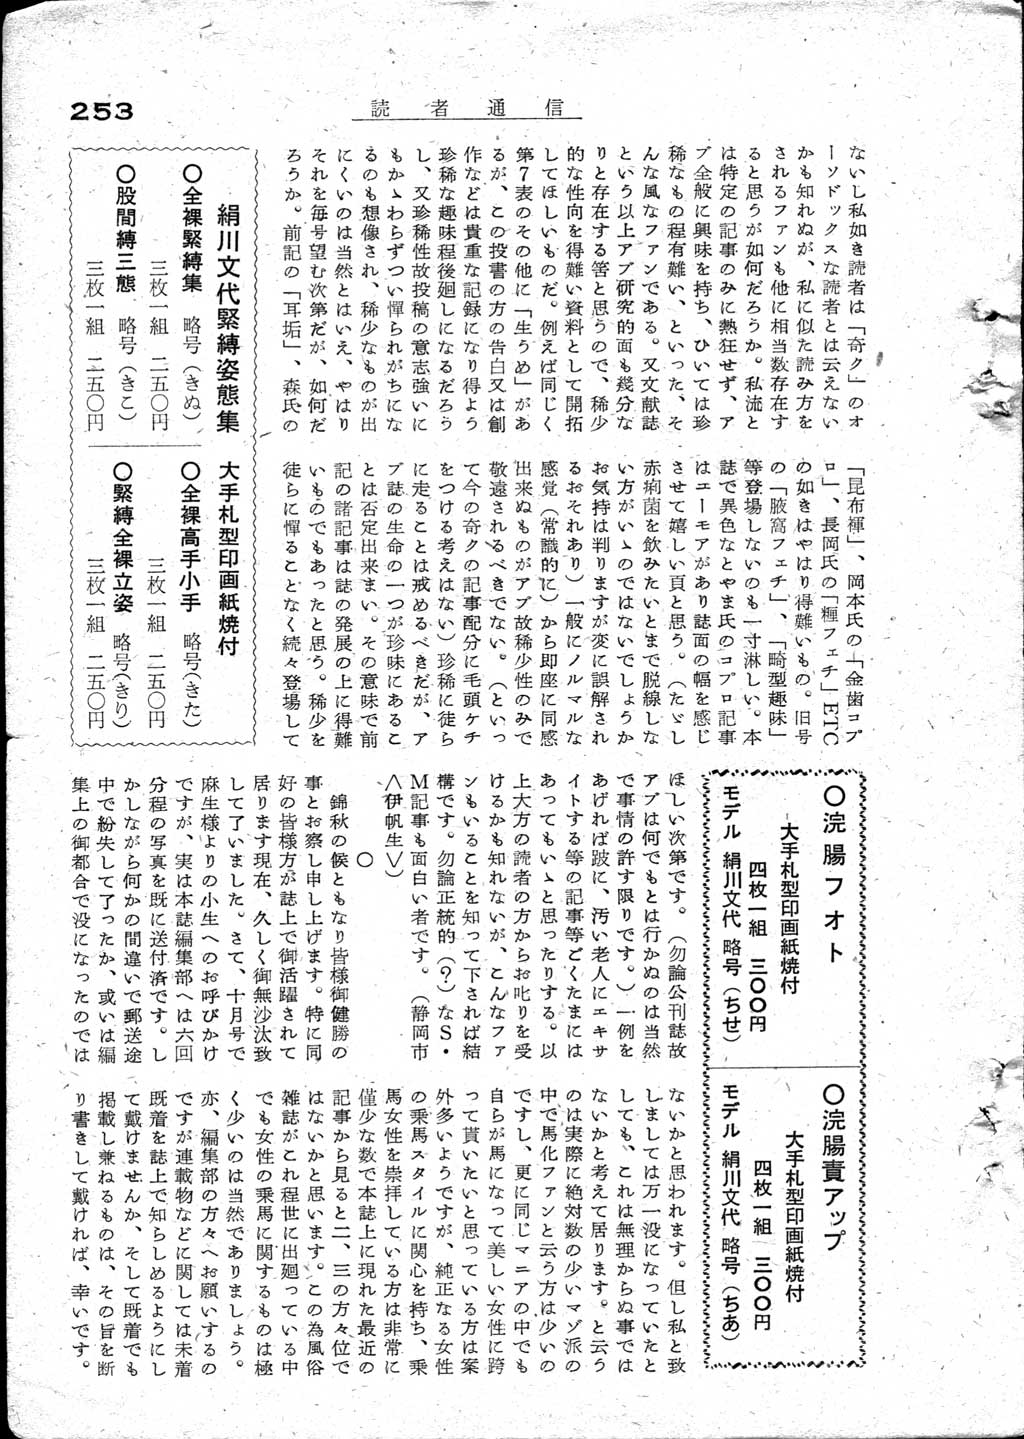 253
読者通信
ないし私如き読者は「奇ク」のオ
ーソドックスな読者とは云えない
かも知れぬが、私に似た読み方を
されるファンも他に相当数存在す
ると思うが如何だろうか。私流と
は特定の記事のみに熱狂せず、ア
ブ全般に興味を持ち、ひいては珍
稀なもの程有難い、といった、そ
んな風なファンである。又文献誌
という以上アブ研究的面も幾分な
りと存在する筈と思うので、稀少
的な性向を得難い資料として開拓
してほしいものだ。例えば同じく
第7表のその他に「生うめ」があ
るが、この投書の方の告白又は創
作などは貴重な記録になり得よう
珍稀な趣味程後廻しになるだろう
し、又珍稀性故投稿の意志強いに
もかゝわらずつい憚られがちにな
るのも想像され、稀少なものが出
にくいのは当然とはいえ、やはり
それを毎号望む次第だが、如何だ
ろうか。前記の「耳垢」、森氏の
絹川文代緊縛姿態集
大手札型印画紙焼付
○全裸緊縛集 略号(きぬ)
三枚一組 二五〇円
○股間縛三態 略号(きこ)
三枚一組 二五〇円
○全裸高手小手 略号(きた)
三枚一組 二五〇円
○緊縛全裸立姿 略号(きり)
三枚一組 二五〇円
「昆布褌」、岡本氏の「金歯コプ
ロ」、長岡氏の「糎フェチ」ETC
の如きはやはり得難いもの。旧号
の「腋窩フェチ」、「畸型趣味」
等登場しないのも一寸淋しい。本
誌で異色なとやま氏のコプロ記事
はユーモアがあり誌面の幅を感じ
させて嬉しい頁と思う。(たゞし
赤痢菌を飲みたいとまで脱線しな
い方がいゝのではないでしょうか
お気持は判りますが変に誤解され
るおそれあり)一般にノルマルな
感覚(常識的に)から即座に同感
出来ぬものがアブ故稀少性のみで
敬遠されるべきでない。(といっ
て今の奇クの記事配分に毛頭ケチ
をつける考えはない)珍稀に徒ら
に走ることは戒めるべきだが、ア
ブ誌の生命の一つが珍味にあるこ
とは否定出来まい。その意味で前
記の諸記事は誌の発展の上に得難
いものでもあったと思う。稀少を
徒らに憚ることなく続々登場して
○浣腸フォト
大手札型印画紙焼付
四枚一組 三〇〇円
モデル 絹川文代 略号(ちせ)
○浣腸責アップ
大手札型印画紙焼付
四枚一組 三〇〇円
モデル 絹川文代 略号(ちあ)
ほしい次第です。(勿論公刊誌故
アブは何でもとは行かぬのは当然
で事情の許す限りです。)一例を
あげれば跛に、汚い老人にエキサ
イトする等の記事等ごくたまには
あってもいゝと思ったりする。以
上大方の読者の方からお叱りを受
けるかも知れないが、こんなファ
ンもいることを知って下されば結
構です。勿論正統的(?)なS・
M記事も面白い者です。(静岡市
〈伊帆生〉)
○
錦秋の候ともなり皆様御健勝の
事とお察し申し上げます。特に同
好の皆様方が誌上で御活躍されて
居ります現在、久しく御無沙汰致
して了いました。さて、十月号で
麻生様よりの小生へのお呼びかけ
ですが、実は本誌編集部へは六回
分程の写真を既に送付済です。し
かしながら何かの間違いで郵送途
中で紛失して了ったか、或いは編
集上の御都合で没になったのでは
ないかと思われます。但し私と致
しましては万一没になっていたと
しても、これは無理からぬ事では
ないかと考えて居ります。と云う
のは実際に絶対数の少いマゾ派の
中で馬化ファンと云う方は少いの
ですし、更に同じマニアの中でも
自らが馬になって美しい女性に跨
って貰いたいと思っている方は案
外多いようですが、純正なる女性
の乗馬スタイルに関心を持ち、乗
馬女性を崇拝している方は非常に
僅少な数で本誌上に現れた最近の
記事から見ると二、三の方々位で
はないかと思います。この為風俗
雑誌がこれ程世に出廻っている中
でも女性の乗馬に関するものは極
く少いのは当然でありましょう。
亦、編集部の方々へお願いするの
ですが連載物などに関しては未着
既着を誌上で知らしめるようにし
て戴けませんか、そして既着でも
掲載し兼ねるものは、その旨を断
り書きして戴ければ、幸いです。